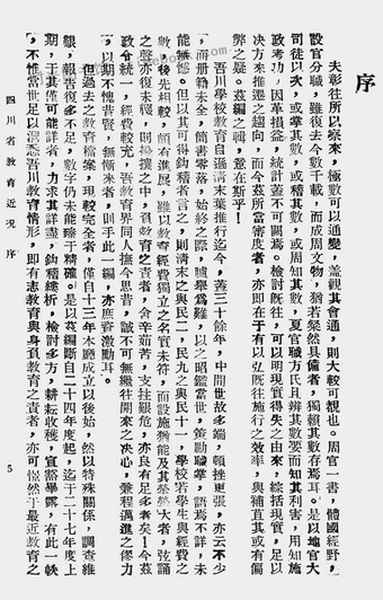 序
夫彰往所以察來，極數可以通變，蓋觀其會通，則大較可覩也。周官一書，體國經野，
設官分職，雖復去今數千載，而成周文物，猶若粲然具備者，獨賴其數存焉耳。是以地官大
司徒以次，或掌其數，或稽其數，或周知其數，夏官職方氏且辨其數要而知其利害，用知施
政考功，因革損益，統計蓋不可闕焉。檢討既往，可以明現實得失之由來，綜括現實，足以
決方來推進之趨向，而今茲所當審度者，亦即在于有以弘既往施行之效率，與補苴其或有偏
弊之疑。茲編之輯，意在斯乎！
吾川學校教育自遜清末葉推行迄今，蓋三十餘年，中間世故多端，頓挫更張，亦云不少
，而册籍未全，簡書零落，始終之際，臚舉爲難，以之昭鑑當世，策勵職掌，語焉不詳，未
能無憾。但以其可得鈎稽者言之，則清末之與民二，民九之與民十一，學校若學生與經費之
數，後先相較，頗有進展，雖以教育經費獨立之名實未符，而設施猶能及其犖犖大者，弦誦
之聲亦復未輟，則搶攘之中，負教育之責者，含辛茹苦，支拄艱危，亦良有足多者矣！今茲
政令統一，經費較充，吾教育界同人撫今思昔，誠不可無繼往開來之決心，兼程邁進之僇力
，以期不愧昔賢，無慚來者，則手此一編，亦庶資激勵耳。
但過去之教育檔案，現較完全者，僅自二十三年本廳成立以後始，然以特殊關係，調查維
艱，報告復多不足，數字仍未能臻于精確。是以茲編斷自二十四年度起，迄于二十七年度上
期，于其僅可能詳者，力求其詳盡，鈎稽縷析，檢討多方，耕耘收穫，宣豁畢露，有此一帙
，不惟當世足以洞悉吾川教育情形，即有志教育與身負教育之責者，亦可憬然于最近教育之
四川省教育近況　序
5